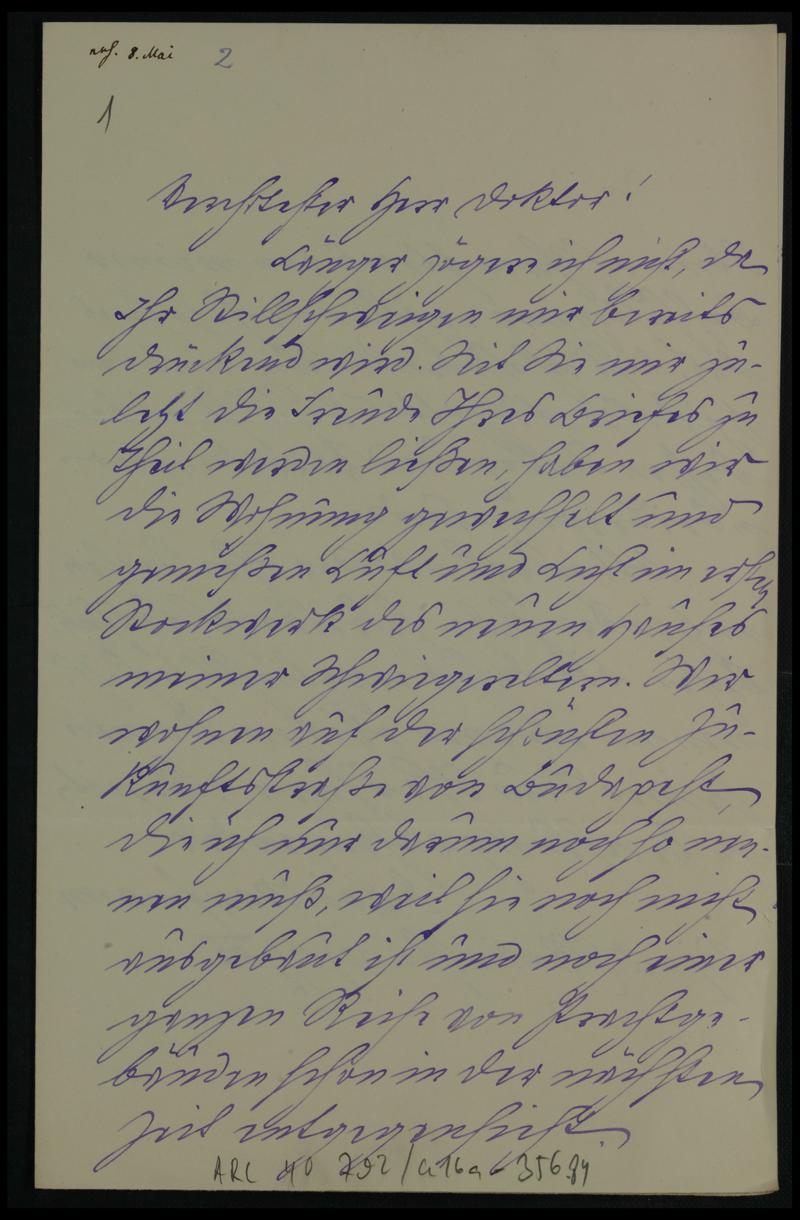 8. Mai 2
1
Verehrtester Herr Doktor!
Länger zögere ich nicht, da
Ihr Stillschweigen mir bereits
drückend wird. Seit Sie mir zu-
letzt die Freude Ihres Briefes zu
Theil werden ließen, haben wir
die Wohnung gewechselt und
genießen Luft und Licht im ersten
Stockwerk des neuen Hauses
meiner Schwiegereltern. Wir
wohnen auf der schönsten Zu-
kunftsstraße von Budapest,
die ich nur darum noch so nen-
nen muß, weil sie noch nicht
ausgebaut ist und noch einer
ganzen Reihe von Prachtge-
bäuden schon in der nächsten
Zeit entgegensieht.
ARC 4o 792/A16a-356.84